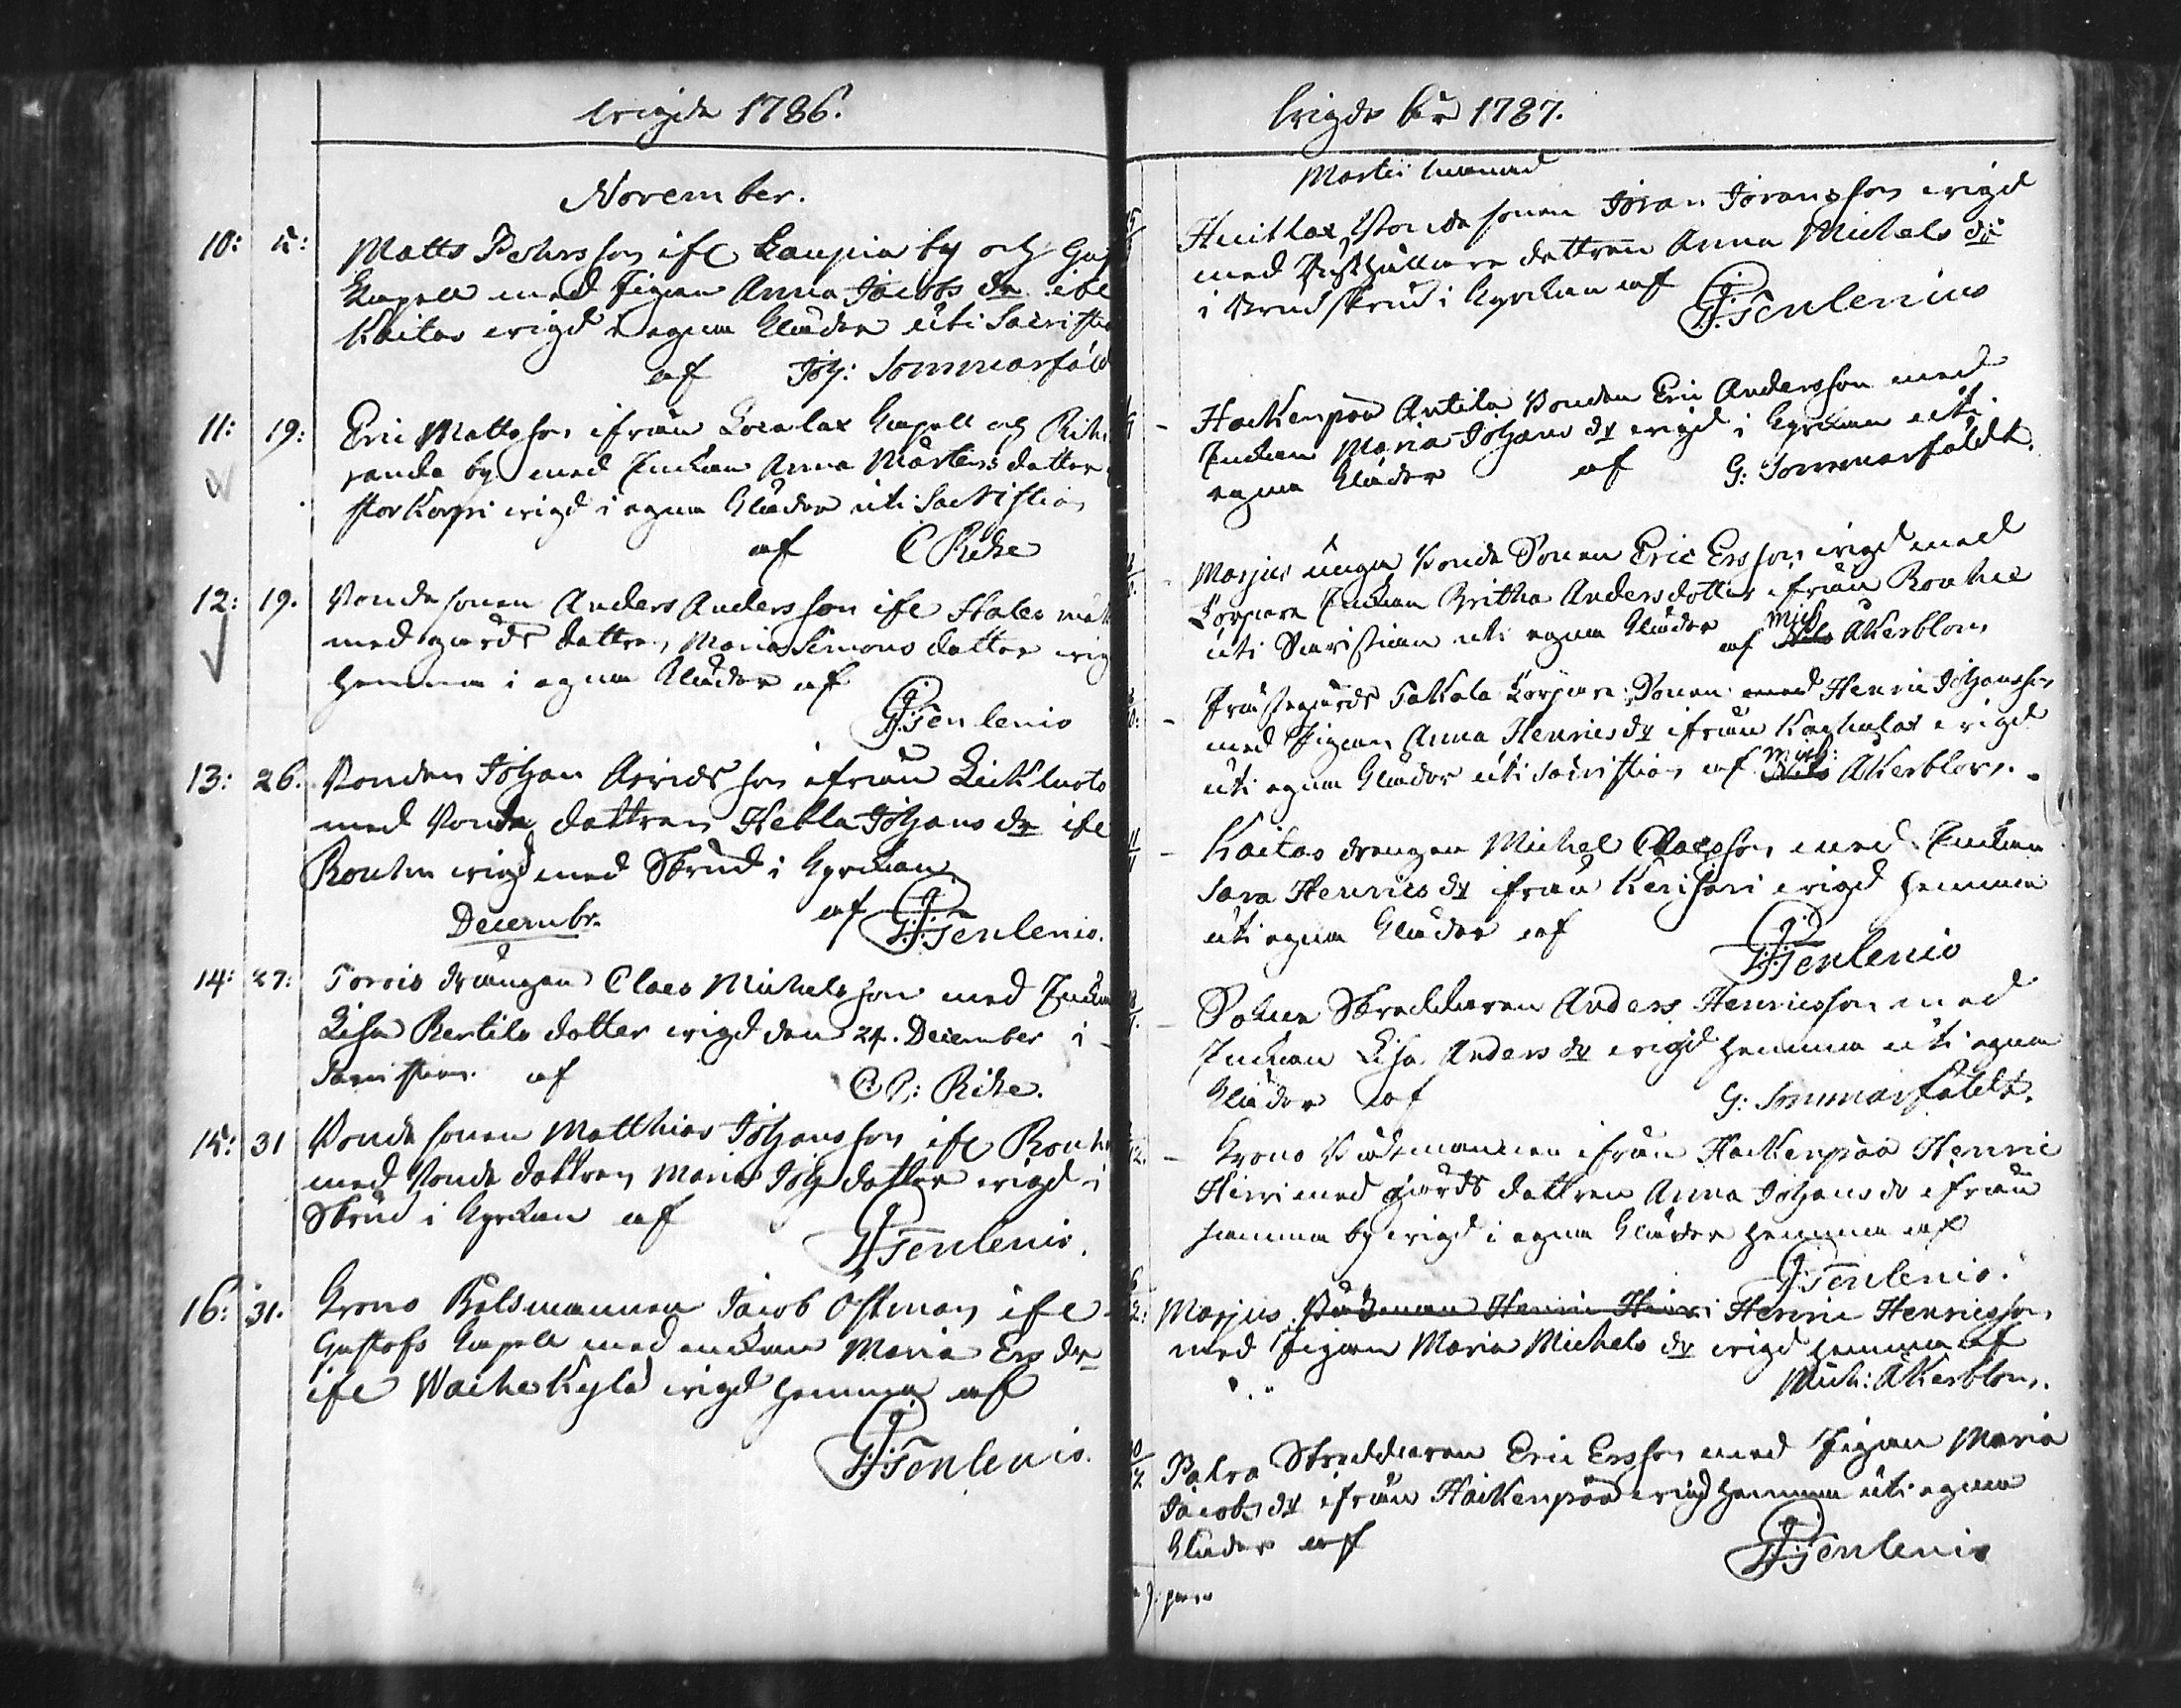 wigde 1786.
November.
10: 5: Matts Pehrsson ifr Laupia by och Gust
Kapell med Pigan Anna Jacobs dr ibd
Kaitas wigd i egna Kläder uti Sacristian
af Joh: Sommarfäld
11: 19: Eric Mattsson ifrån Localax Kapell och
randa by med Enkan Anna Mårtens dotter
storKorpi wigd i egna Kläder uti Sacristian
af C Riche
12: 19. Bonde sonen Anders Andersson ifr
med gårds dottren Maria Simons dotter wigd
hemma i egna Kläder af
G: Tenlenio
13: 26. Bonden Johan Arvidsson ifrån
med Bonde dottren Hebla Johans dr ifr
Rouhu wigd med Skrud i Kyrckan
Decembr. af G: Tenlenio.
14: 27: Torois drängen Claes Michelsson med Enkan
Lisa Bertils dotter wigd den 24. December i
Sacristian af C P: Riche.
15: 31 Bonde sonen Matthias Johansson ifr Rouhu
med Bonde dottren Maria Joh dotter wigd i
Skrud i Kyrckan af
G: Tenlenio.
16: 31. Krono Båtsmannen Jacob Östman ifr
Gustafs Kapell med enckan Maria Ers dr
ifr WaiheKylä wigd hemma af
G: Tenlenio.
wigde År 1787.
Martii månad
Bonde sonen Jöran Jöransson wigd
med dottren Anna Michels dr
i Brudskrud i Kyrckan af G: Tenlenius
- Hackenpää Antila Bonden Eric Andersson med
Enckan Maria Johans dr wigd i Kyrckan uti
egna Kläder af G: Sommarfäldt.
- Marjus unga Bonde Sonen Eric Ersson wigd med
Torpare Enckan Britha Andersdotter ifrån Rouhu
uti Sacristian uti egna Kläder af Mich Åkerblom
- Prästegårds Takala Torpare Sonen med Henric Johansson
med Pigan Anna Henrics dr ifrån wigd
uti egna Kläder uti Sacristian af Mich: Åkerblom.
- Kaitas drengen Michel Claesson med Enckan
Sara Henrics dr ifrån Kerisari wigd hemma
uti egna Kläder af
G: Tenlenio
- Skreddaren Anders Henricsson med
Enckan Lisa Anders dr wigd hemma uti egna
Kläder af G: Sommarfäldt.
12. - Krono Båtsmannen ifrån Hackenpää Henric
Hirri med gårds dottren Anna Johans dr ifrån
samma by wigd i egna Kläder hemma af
G: Tenlenio.
Marjus Båtsman Henric Hirri Henric Henricsson
med Pigan Maria Michels dr wigd hemma af
Mich: Åkerblom.
Palva Skreddaren Eric Ersson med Pigan Maria
Jacobs dr ifrån Hackenpää wigd hemma uti egna
Kläder af
G: Tenlenio